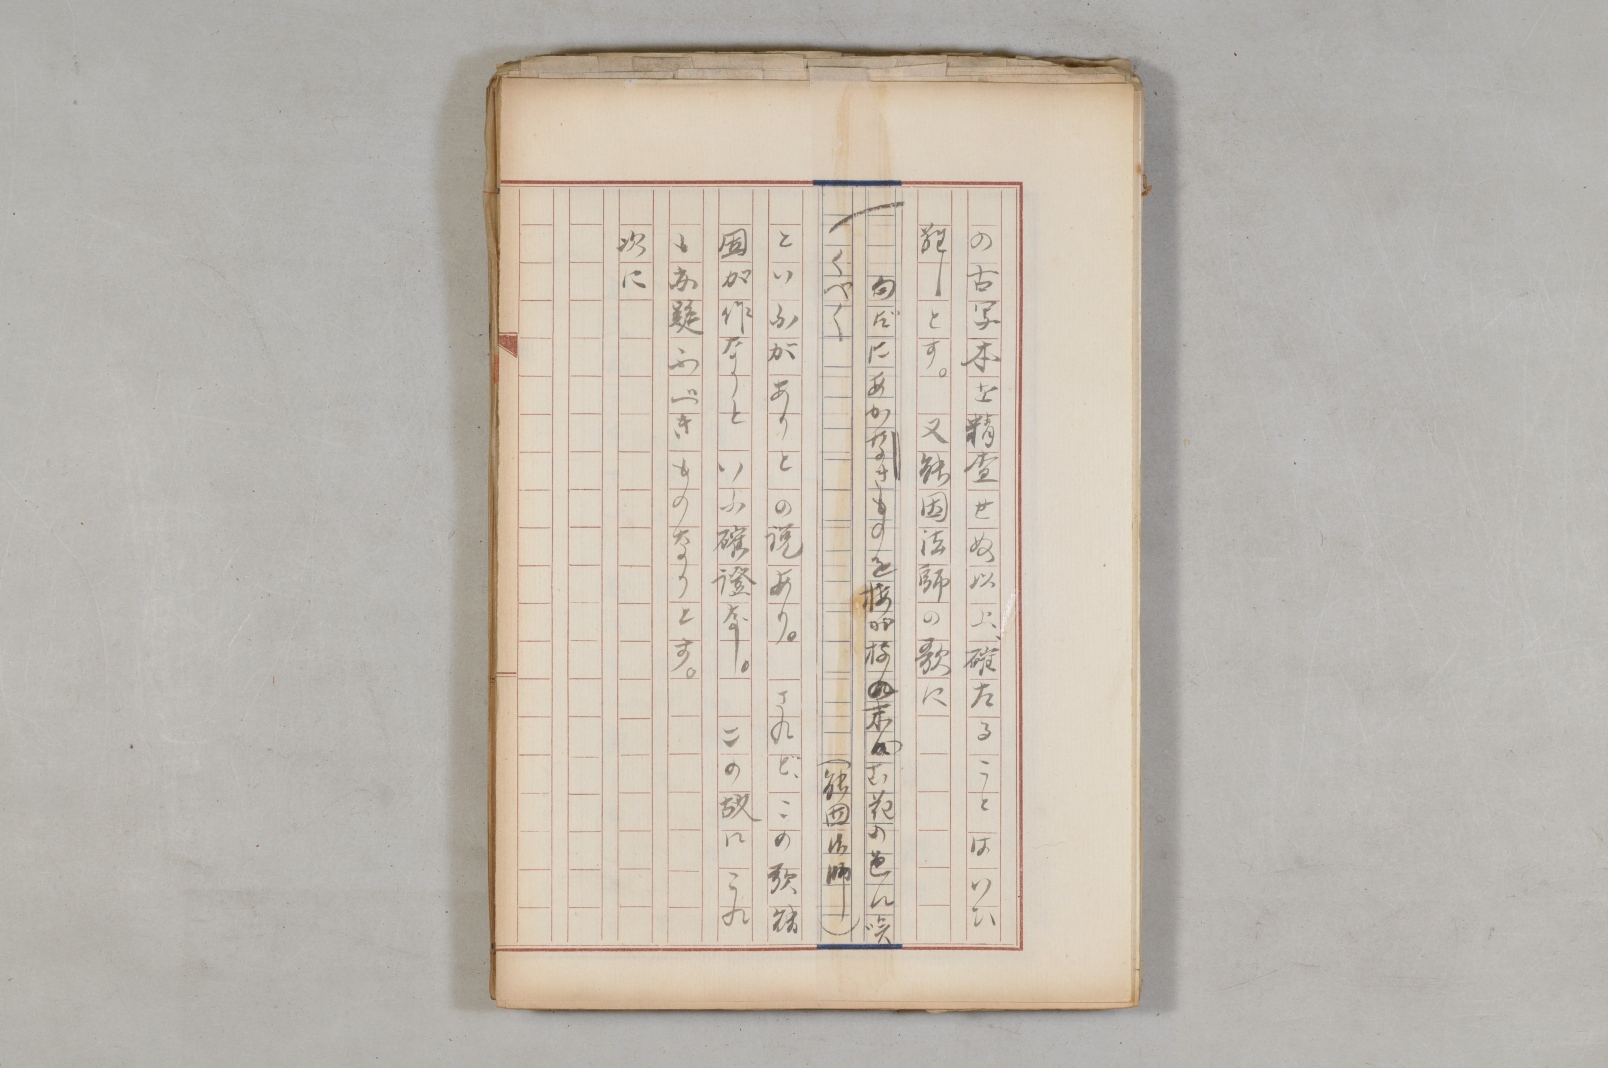 の古写本を精査せぬ以上、確たることはいひ
難しとす。又能因法師の歌に
匂だにあかなきものを梅が枝の末つむ花の色に咲
くべく（能因法師）
といふがありとの説あり。されど、この歌能
因が作なりといふ確證なし。この故にこれ
も亦疑ふべきものなりとす。
次に